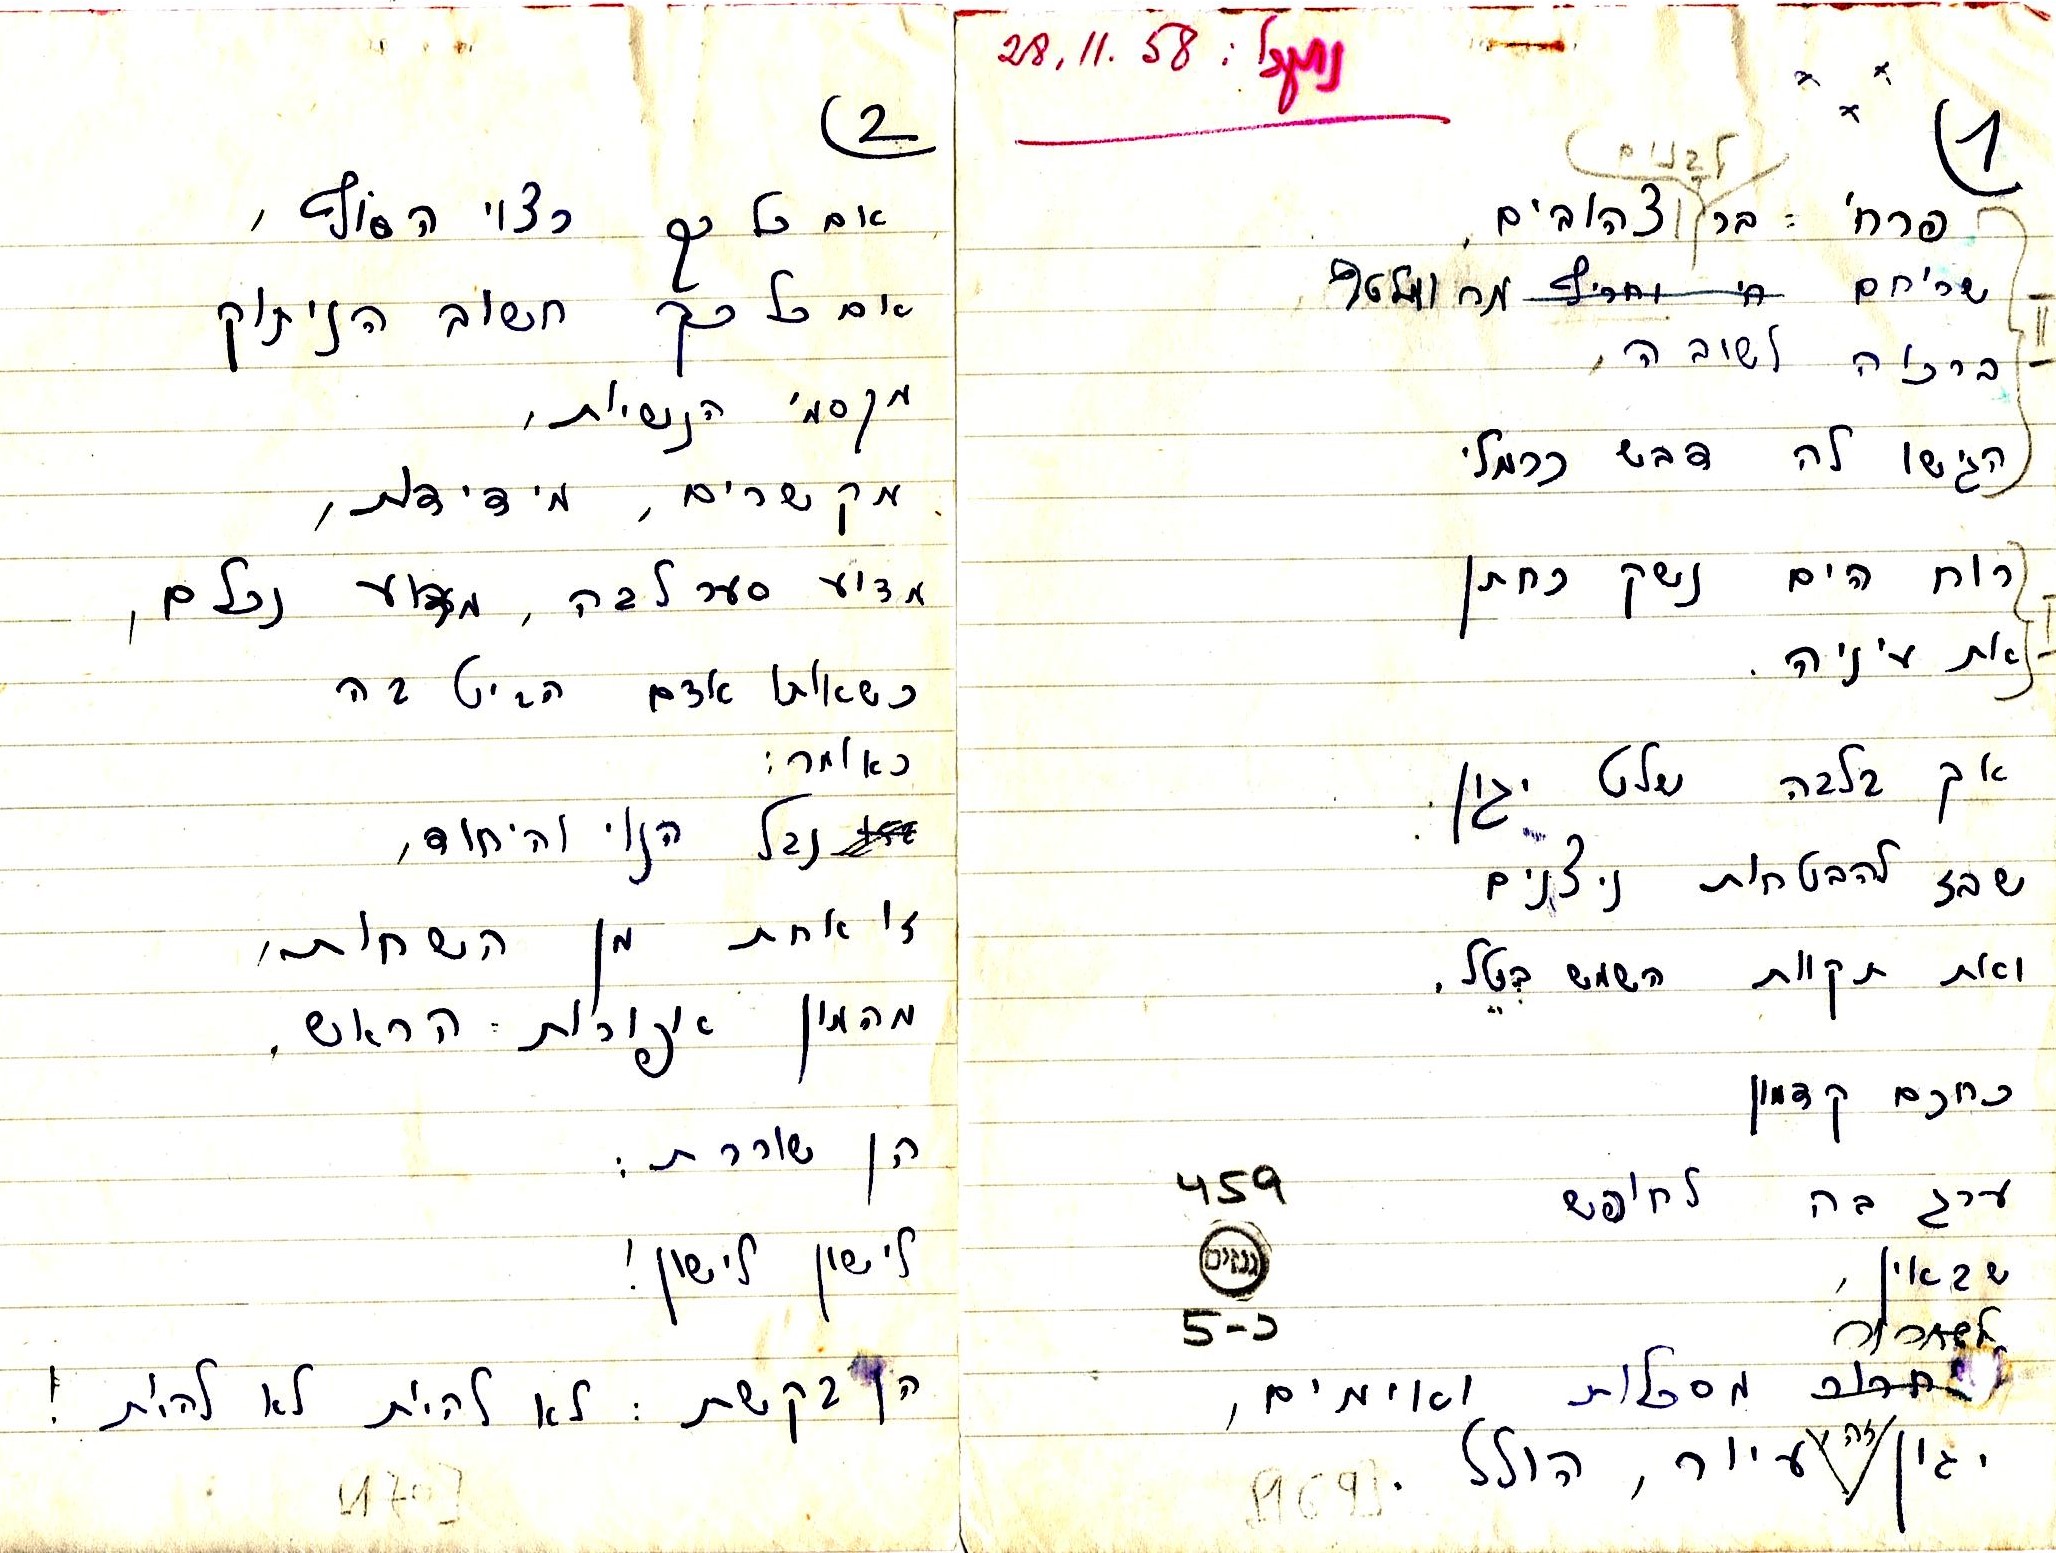 נתקבל: 28.11.58
* * *
1)
לבנים
פרחי-בר צהובים,
שריחם חי וחריף מר ומלטף
ברכוה לשובה,
II
הגישו לה דבש כרמלי
רוח הים נשק כחתן
I
את עיניה.
אך בלבה שלט יגון.
שבז להבטחות ניצנים
ואת תקוות השמש בִּטֵל.
כחכם קדמון
ערג בה לחופש
שבאין,
לשחרור
מסכלות ואוימים,
יגון זה עיור, הולל.
459
גנזים
5-כ
[169]
2)
אם כל כך רצוי הסוֹף,
אם כל כך חשוב הניתוק
מקסמי הנשיות,
מקשרים, מידידות,
מדוע סער לבה, מדוע נכלם,
כשאותו אדם הביט בה
כאומר:
נבל הנוי והיחוד,
זו אחת מן השחות,
מהמון אפורות-הראש.
הן שוררת:
לישון לישון!
הן בקשת: לא להיות לא להיות!
[170]